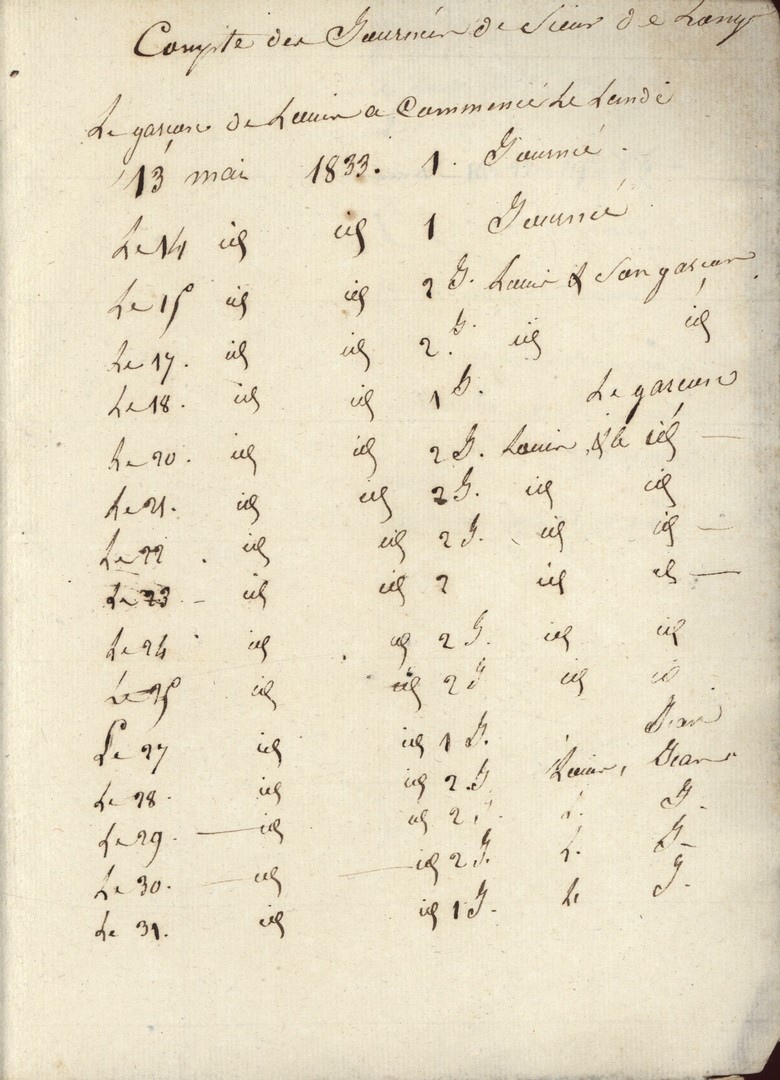 Compte des Journés de Sieur de Lany
Le garçon de Louis a Commencé Le Lundi
13 mai 1833. 1. Journé.
Le 14 id id 1 Journé
Le 15 id id 2 J. Louis & Son garçon
Le 17. id id 2. J. id id
Le 18. id id 1 J. Le garçon
Le 20. id id 2 J. Louis & le id —
Le 21. id id 2 J. id id
Le 22. id id 2 J. id id —
Le 23 - id id 2 id id —
Le 24 id id 2 J. id id
Le 25 id id 2 J id id
Le 27 id id 1 J. Jean
Le 28. id id 2. J Louis, Jean
Le 29. — id id 2 J. L. J.
Le 30. — id — id 2 J. L. J.
Le 31. id id 1 J. L. J.